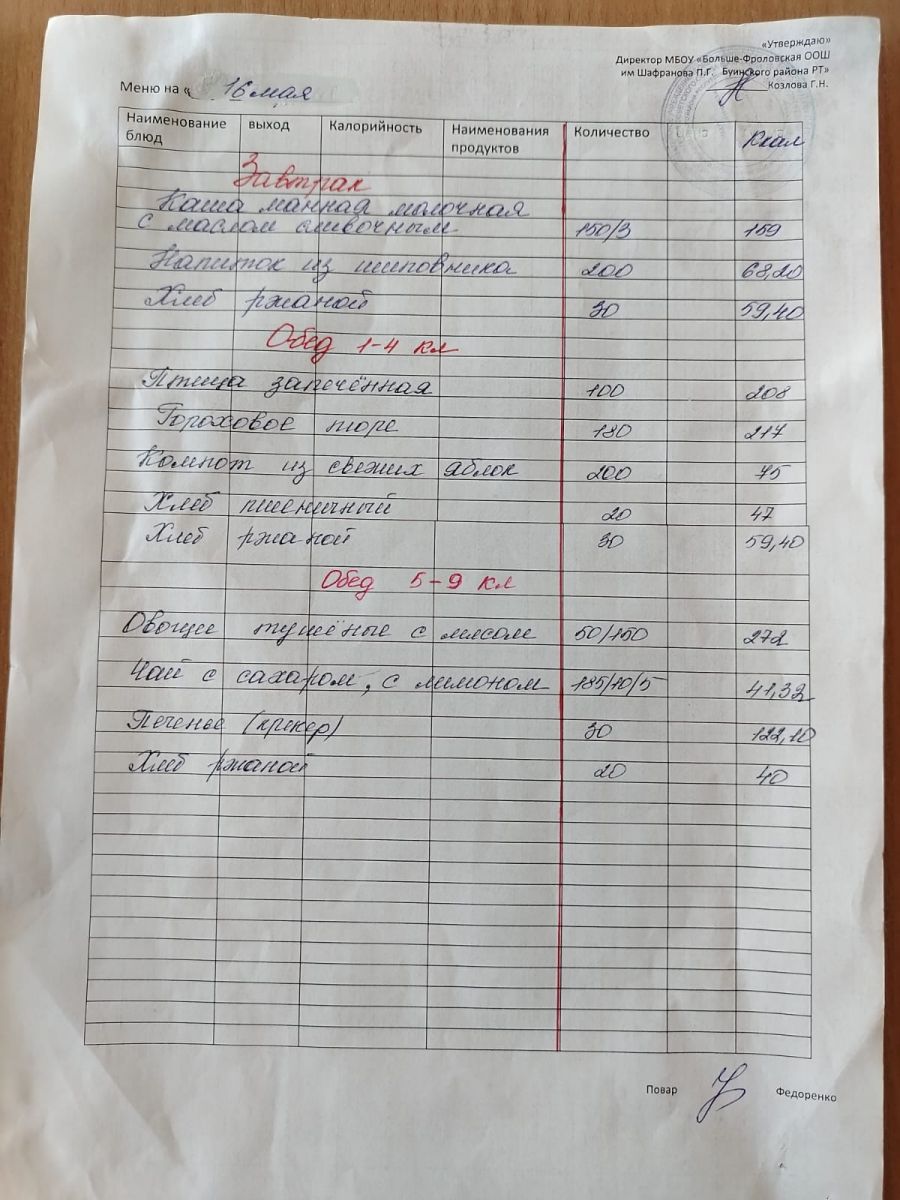 «Утверждаю»
Директор МБОУ «Больше-Фроловская ООШ
им Шафранова П.Г. Буинского района РТ»
Козлова Г.Н.
Меню на « 16 мая
Наименование блюд выход Калорийность Наименования продуктов Количество Ккал
Завтрак
Каша манная молочная
с маслом сливочным 150/3 159
Напиток из шиповника 200 68,20
Хлеб ржаной 30 59,40
Обед 1-4 кл
Птица запечённая 100 208
Гороховое пюре 180 217
Компот из свежих яблок 200 75
Хлеб пшеничный 20 47
Хлеб ржаной 30 59,40
Обед 5-9 кл
Овощие тушёные с мясом 50/150 272
Чай с сахаром, с лимоном 185/10/5 41,32
Печенье (крекер) 30 122,10
Хлеб ржаной 20 40
Повар Федоренко